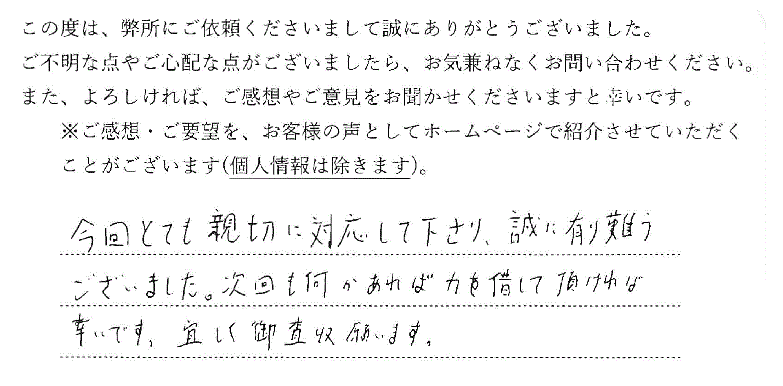 この度は、弊所にご依頼くださいまして誠にありがとうございました。
ご不明な点やご心配な点がございましたら、お気兼ねなくお問い合わせください。
また、よろしければ、ご感想やご意見をお聞かせくださいますと幸いです。
※ご感想・ご要望を、お客様の声としてホームページで紹介させていただく
ことがございます(個人情報は除きます)。
今回とても親切に対応して下さり、誠に有り難う
ございました。次回も何かあれば力を借して頂ければ
幸いです、宜しく御査収願います。